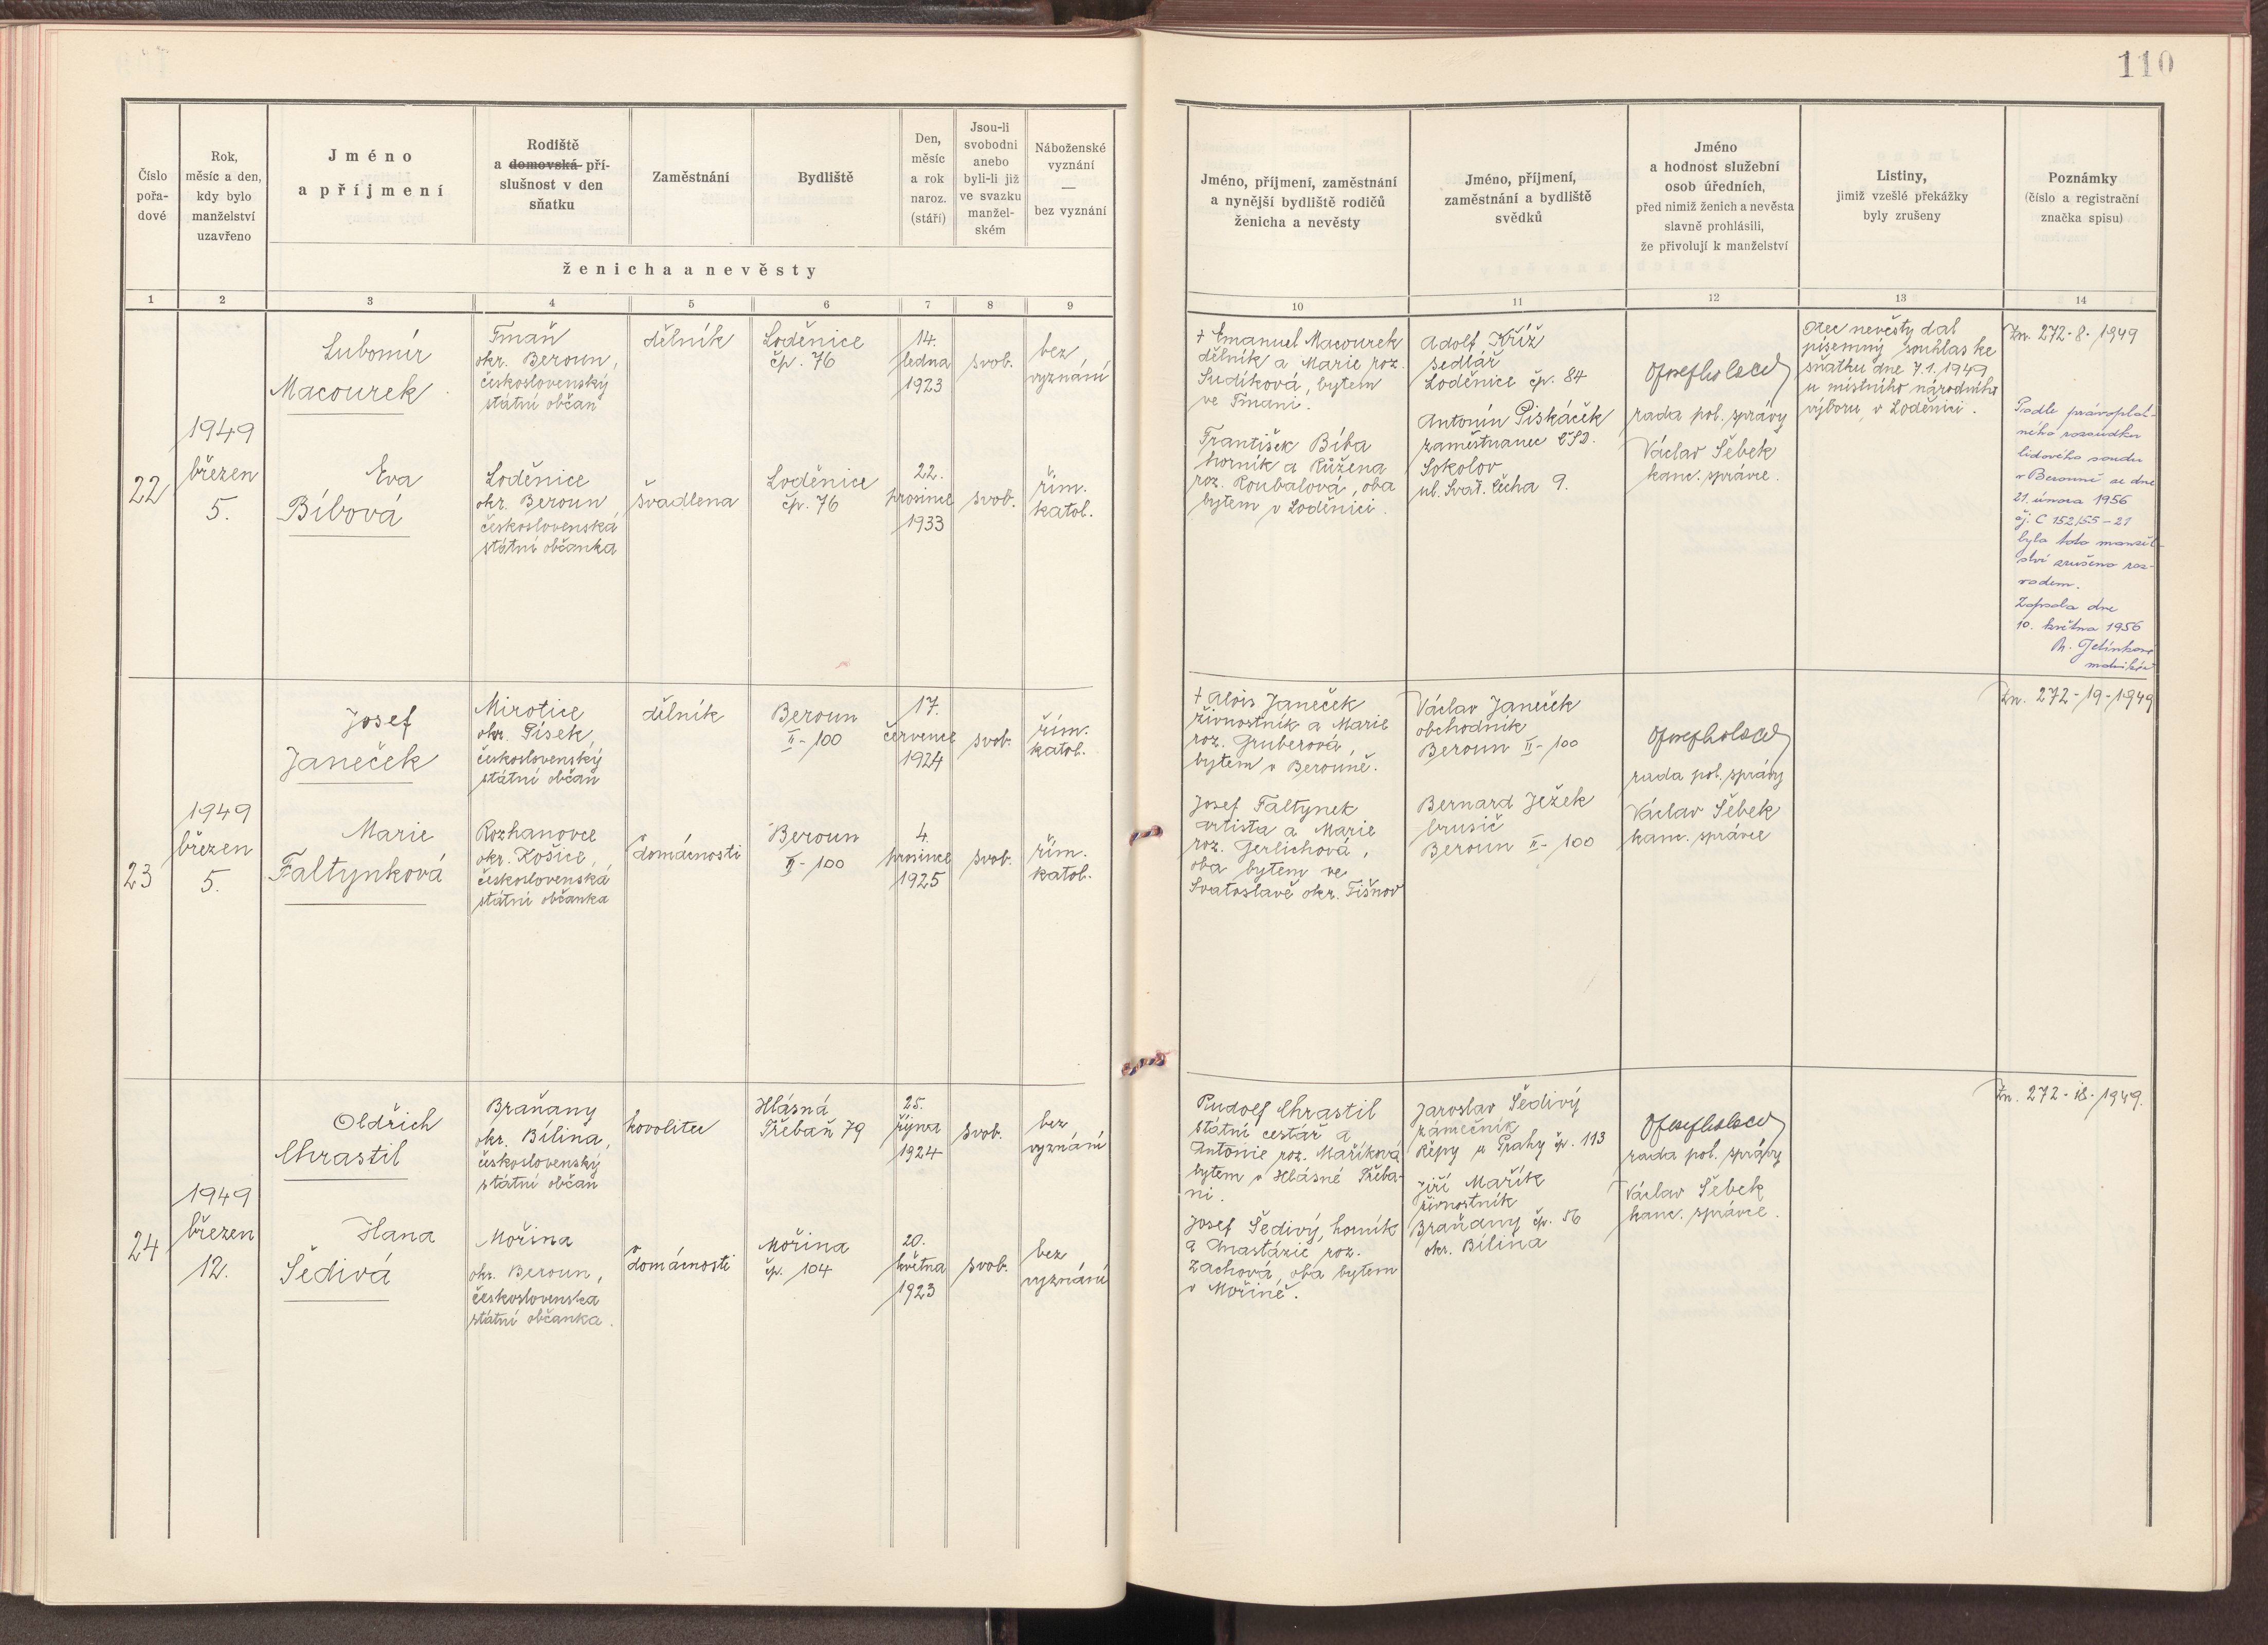 110
Číslo
pořa-
dové
Rok,
měsíc a den,
kdy bylo
manželství
uzavřeno
Jméno
a příjmení
Rodiště
a domovská pří-
slušnost v den
sňatku
Zaměstnání
Bydliště
Den,
měsíc
a rok
naroz.
(stáří)
Jsou-li
svobodni
anebo
byli-li již
ve svazku
manžel-
ském
Náboženské
vyznání
—
bez vyznání
ženicha a nevěsty
Jméno, příjmení, zaměstnání
a nynější bydliště rodičů
ženicha a nevěsty
Jméno, příjmení,
zaměstnání a bydliště
svědků
Jméno
a hodnost služební
osob úředních,
před nimiž ženich a nevěsta
slavně prohlásili,
že přivolují k manželství
Listiny,
jimiž vzešlé překážky
byly zrušeny
Poznámky
(číslo a registrační
značka spisu)
1 2 3 4 5 6 7 8 9 10 11 12 13 14
22
1949
březen
5.
Lubomír
Macourek
Tmaň
okr. Beroun,
československý
státní občan
dělník
Loděnice
čp. 76
14.
ledna
1923
svob.
bez
vyznání
Eva
Bíbová
Loděnice
okr. Beroun,
československá
státní občanka
švadlena
Loděnice
čp. 76
22.
prosince
1933
svob.
řím.
katol.
+ Emanuel Macourek
dělník a Marie roz.
Sudíková, bytem
ve Tmani.
František Bíba
horník a Růžena
roz. Roubalová, oba
bytem v Loděnici.
Adolf Kříž
sedlář
Loděnice čp. 84
Antonín Piskáček
zaměstnanec ČSD.
Sokolov
ul. Svat. Čecha 9.
rada pol. správy
Václav Šebek
kanc. správce.
Otec nevěsty dal
písemný souhlas ke
sňatku dne 7.1.1949
u místního národního
výboru v Loděnici.
Zn. 272-8-1949
Podle právoplat-
ného rozsudku
lidového soudu
v Berouně ze dne
21. února 1956
čj. C 152/55-21
bylo toto manžel-
ství zrušeno roz-
vodem.
Zapsala dne
10. května 1956
Jelínková
matrikářka
23
1949
březen
5.
Josef
Janeček
Mirotice
okr. Písek,
československý
státní občan
dělník
Beroun
II-100
17.
července
1924
svob.
řím.
katol.
Marie
Faltynková
Rozhanovce
okr. Košice,
československá
státní občanka
v domácnosti
Beroun
II-100
4.
prosince
1925
svob.
řím.
katol.
+ Alois Janeček
živnostník a Marie
roz. Gruberová,
bytem v Berouně.
Josef Faltynek
artista a Marie
roz. Gerlichová,
oba bytem ve
Svatoslavě okr. Tišnov
Václav Janeček
obchodník
Beroun II-100
Bernard Ježek
brusič
Beroun II-100
rada pol. správy
Václav Šebek
kanc. správce
Zn. 272-19-1949
24
1949
březen
12.
Oldřich
Chrastil
Braňany
okr. Bílina,
československý
státní občan
kovolitec
Hlásná
Třebaň 79
25.
října
1924
svob.
bez
vyznání
Hana
Šedivá
Mořina
okr. Beroun,
československá
státní občanka.
v domácnosti
Mořina
čp. 104
20.
května
1923
svob.
bez
vyznání
Rudolf Chrastil
státní cestář a
Antonie roz. Maříková
bytem v Hlásné Třeba-
ni.
Josef Šedivý, horník
a Anastázie roz.
Zachová, oba bytem
v Mořině.
Jaroslav Šedivý
zámečník
Řepy u Prahy čp. 113
Jiří Mařík
živnostník
Braňany čp. 56
okr. Bílina
rada pol. správy
Václav Šebek
kanc. správce.
Zn. 272-18-1949.